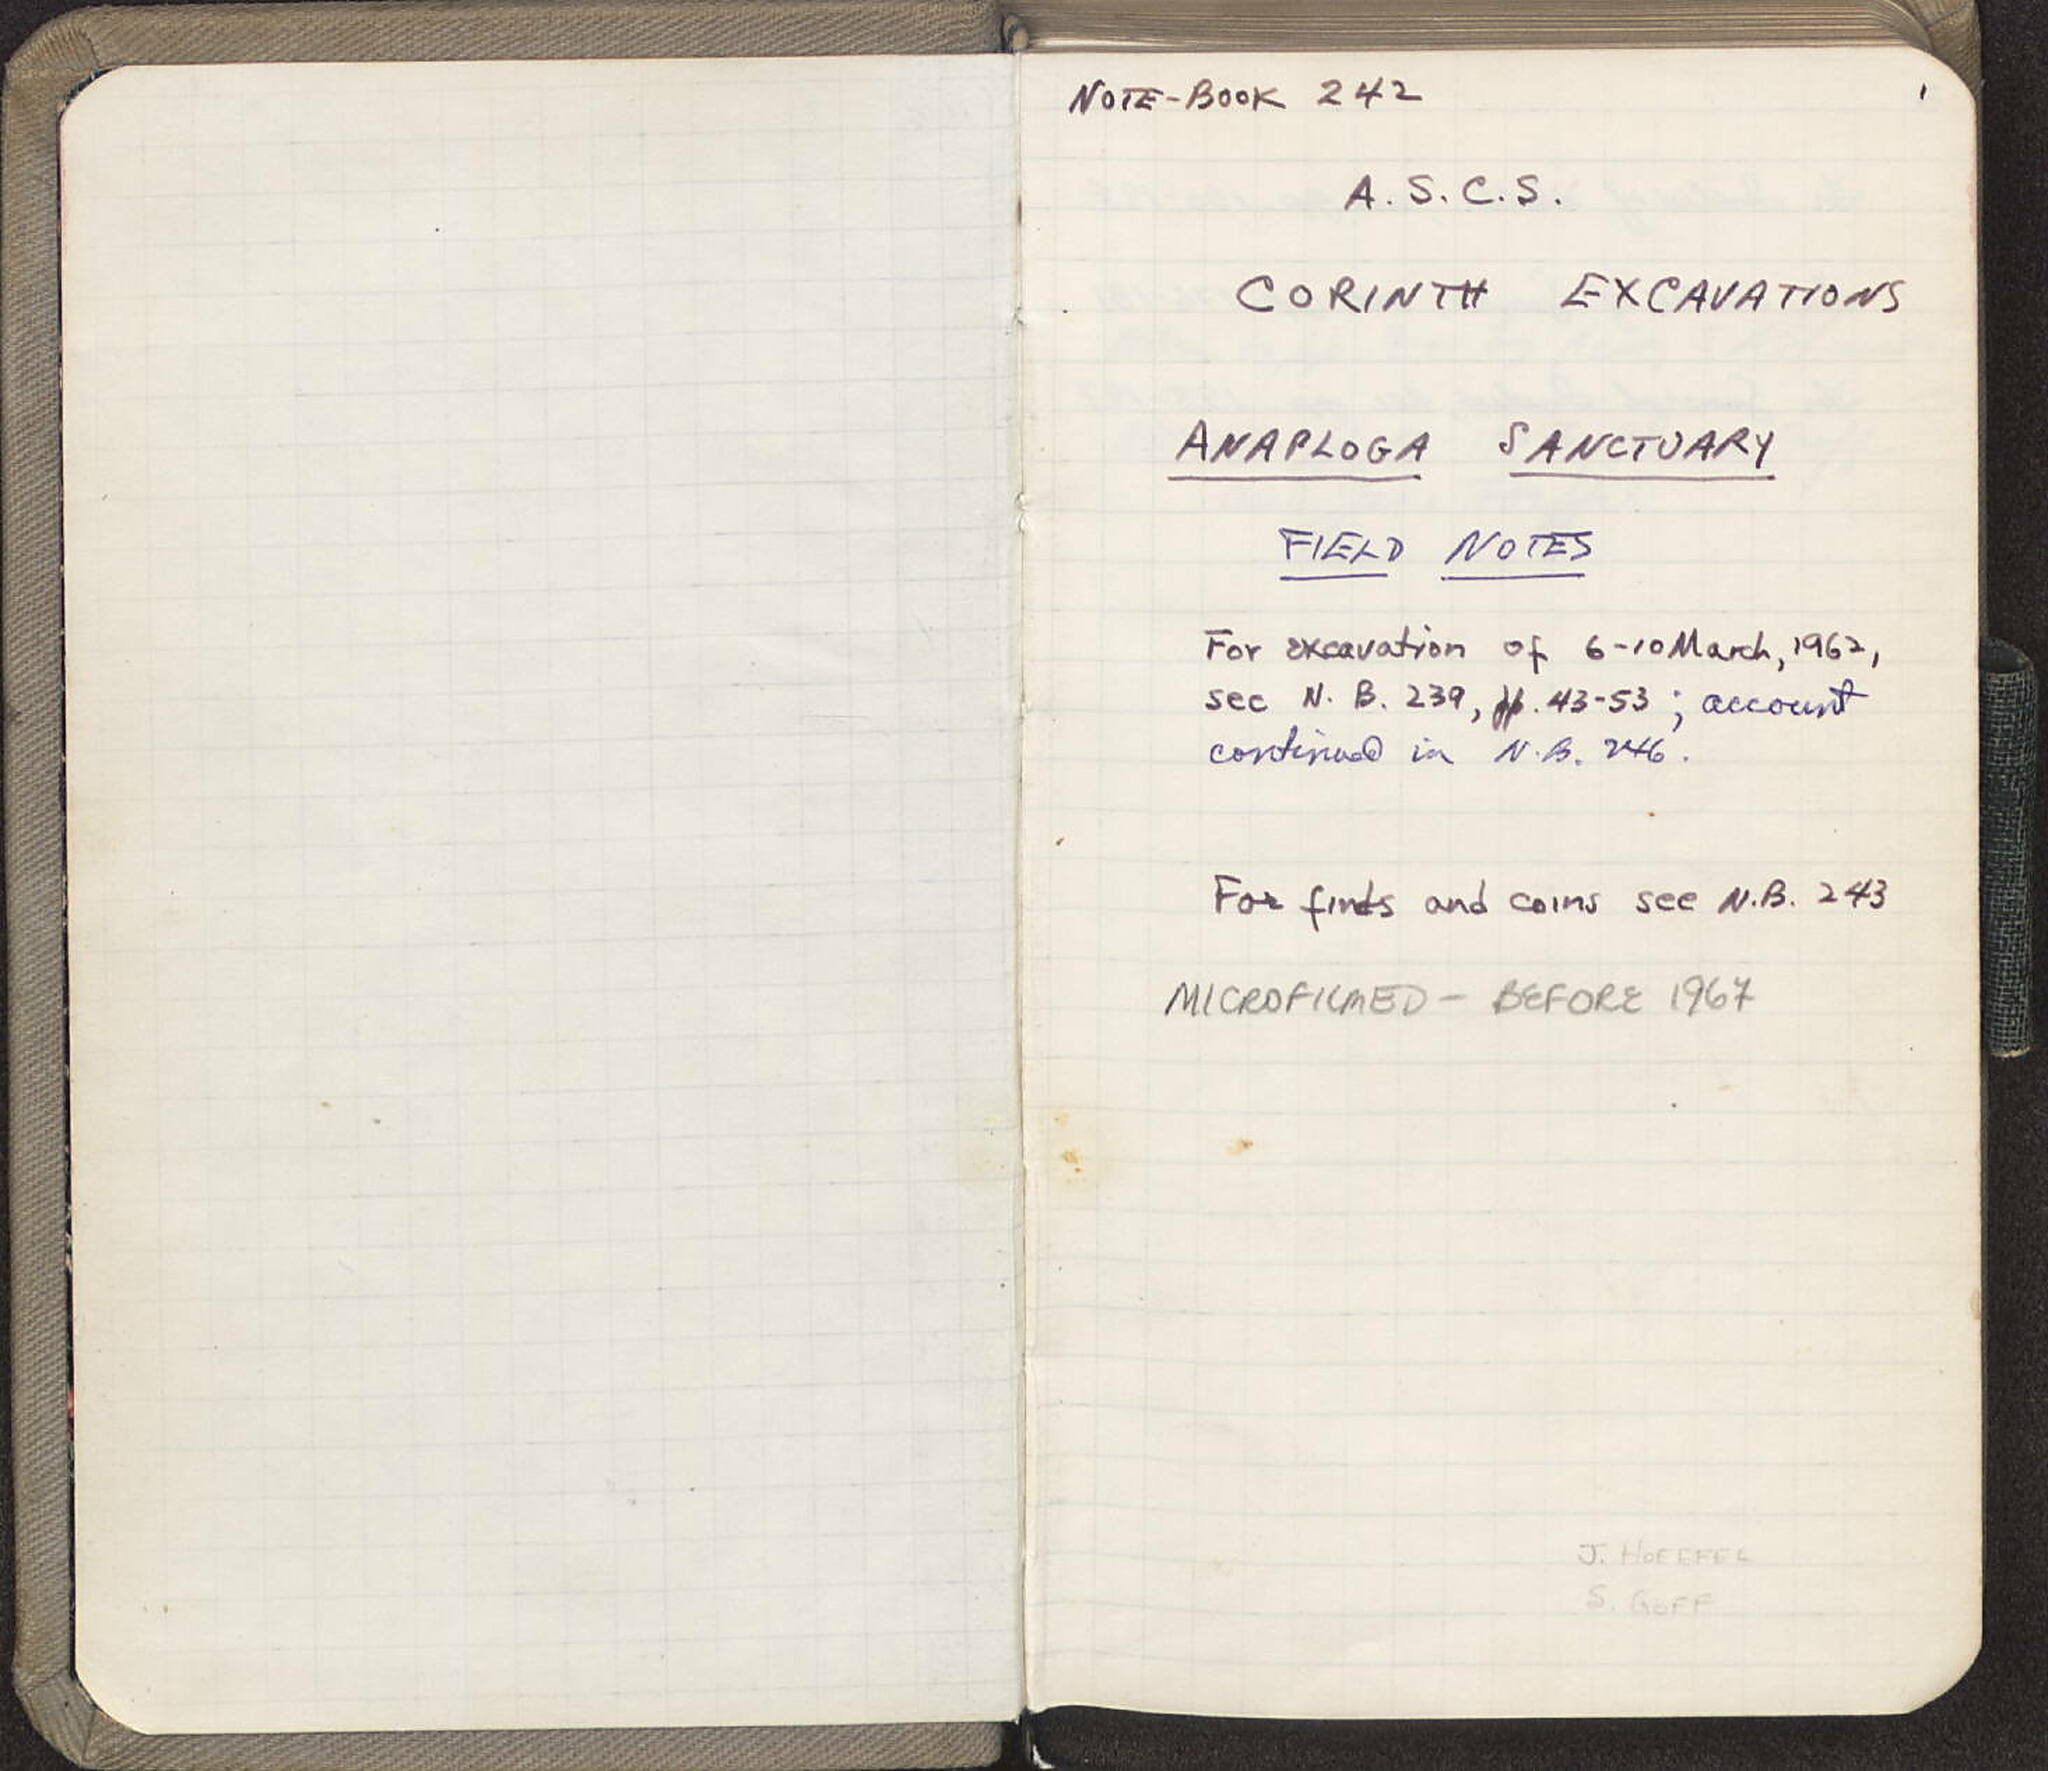 NOTE-BOOK 242
1
A.S.C.S.
CORINTH EXCAVATIONS
ANAPLOGA SANCTUARY
FIELD NOTES
For excavation of 6-10 March, 1962,
see N. B. 239, pp. 43-53 ; account
continued in N.B. 246.
For finds and coins see N.B. 243
MICROFILMED - BEFORE 1967
J. HOEFFEL
S. GOFF